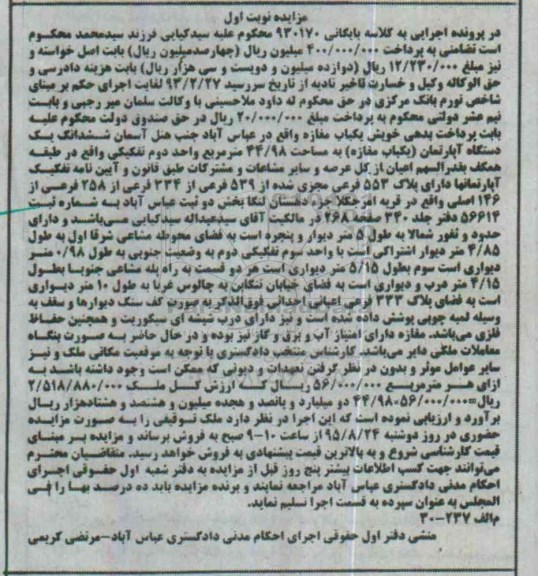 مزایده نوبت اول
در پرونده اجرایی به کلاسه بایگانی ۹۳۰۱۷۰ محکوم علیه سیدکیایی فرزند سیدمحمد محکوم
است تضامنی به پرداخت ۴۰۰/۰۰۰/۰۰۰ میلیون ریال (چهارصدمیلیون ریال) بابت اصل خواسته و
نیز مبلغ ۱۲/۲۳۰/۰۰۰ ریال (دوازده میلیون و دویست و سی هزار ریال) بابت هزینه دادرسی و
حق الوکاله وکیل و خسارت تاخیر تادیه از تاریخ سررسید ۹۳/۲/۲۷ لغایت اجرای حکم بر مبنای
شاخص تورم بانک مرکزی در حق محکوم له داود ملاحسینی با وکالت سلمان میر رجبی و بابت
نیم عشر دولتی محکوم به پرداخت مبلغ ۲۰/۰۰۰/۰۰۰ ریال در حق صندوق دولت محکوم علیه
بابت پرداخت بدهی خویش یکباب مغازه واقع در عباس آباد جنب هتل آسمان ششدانگ یک
دستگاه آپارتمان (یکباب مغازه) به مساحت ۴۴/۹۸ مترمربع واحد دوم تفکیکی واقع در طبقه
همکف بقدرالسهم اعیان از کل عرصه و سایر مشاعات و مشترکات طبق قانون و آیین نامه تفکیک
آپارتمانها دارای پلاک ۵۵۳ فرعی مجزی شده از ۵۳۹ فرعی از ۳۳۴ فرعی از ۲۵۸ فرعی از
۱۴۶ اصلی واقع در قریه امرجکلا جز دهستان لنگا بخش دو ثبت عباس آباد به شماره ثبت
۵۶۶۱۴ دفتر جلد ۳۴۰ صفحه ۲۶۸ در مالکیت آقای سیدعبداله سیدکیایی می‌باشد و دارای
حدود و ثغور شمالا به طول ۵ متر دیوار و پنجره است به فضای محوطه مشاعی شرقا اول به طول
۴/۸۵ متر دیوار اشتراکی است با واحد سوم تفکیکی دوم به وضعیت جنوبی به طول ۰/۹۸ متر
دیواری است سوم بطول ۵/۱۵ متر دیواری است هر دو قسمت به راه پله مشاعی جنوبا بطول
۴/۱۵ متر درب و دیواری است به فضای خیابان تنکابن به چالوس غربا به طول ۱۰ متر دیواری
است به فضای پلاک ۳۳۳ فرعی اعیانی احداثی فوق‌الذکر به صورت کف سنگ دیوارها و سقف به
وسیله لمبه چوبی پوشش داده شده است و نیز دارای درب شیشه ای سیکوریت و همچنین حفاظ
فلزی می‌باشد. مغازه دارای امتیاز آب و برق و گاز نیز بوده و در حال حاضر به صورت بنگاه
معاملات ملکی دایر می‌باشد. کارشناس منتخب دادگستری با توجه به موقعیت مکانی ملک و نیز
سایر عوامل موثر و بدون در نظر گرفتن تعهدات و دیونی که ممکن است وجود داشته باشد به
ازای هر مترمربع ۵۶/۰۰۰/۰۰۰ ریال کلا ارزش کل ملک ۲/۵۱۸/۸۸۰/۰۰۰
ریال=۴۴/۹۸×۵۶/۰۰۰/۰۰۰ دو میلیارد و پانصد و هجده میلیون و هشتصد و هشتادهزار ریال
برآورد و ارزیابی نموده است که این اجرا در نظر دارد ملک توقیفی را به صورت مزایده
حضوری در روز دوشنبه ۹۵/۸/۲۴ از ساعت ۱۰-۹ صبح به فروش برساند و مزایده بر مبنای
قیمت کارشناسی شروع و به بالاترین قیمت پیشنهادی به فروش خواهد رسید. متقاضیان محترم
می‌توانند جهت کسب اطلاعات بیشتر پنج روز قبل از مزایده به دفتر شعبه اول حقوقی اجرای
احکام مدنی دادگستری عباس آباد مراجعه نمایند و برنده مزایده باید ده درصد بها را فی
المجلس به عنوان سپرده به قسمت اجرا تسلیم نماید.
م‌الف ۲۳۷-۳۰
منشی دفتر اول حقوقی اجرای احکام مدنی دادگستری عباس آباد-مرتضی کریمی